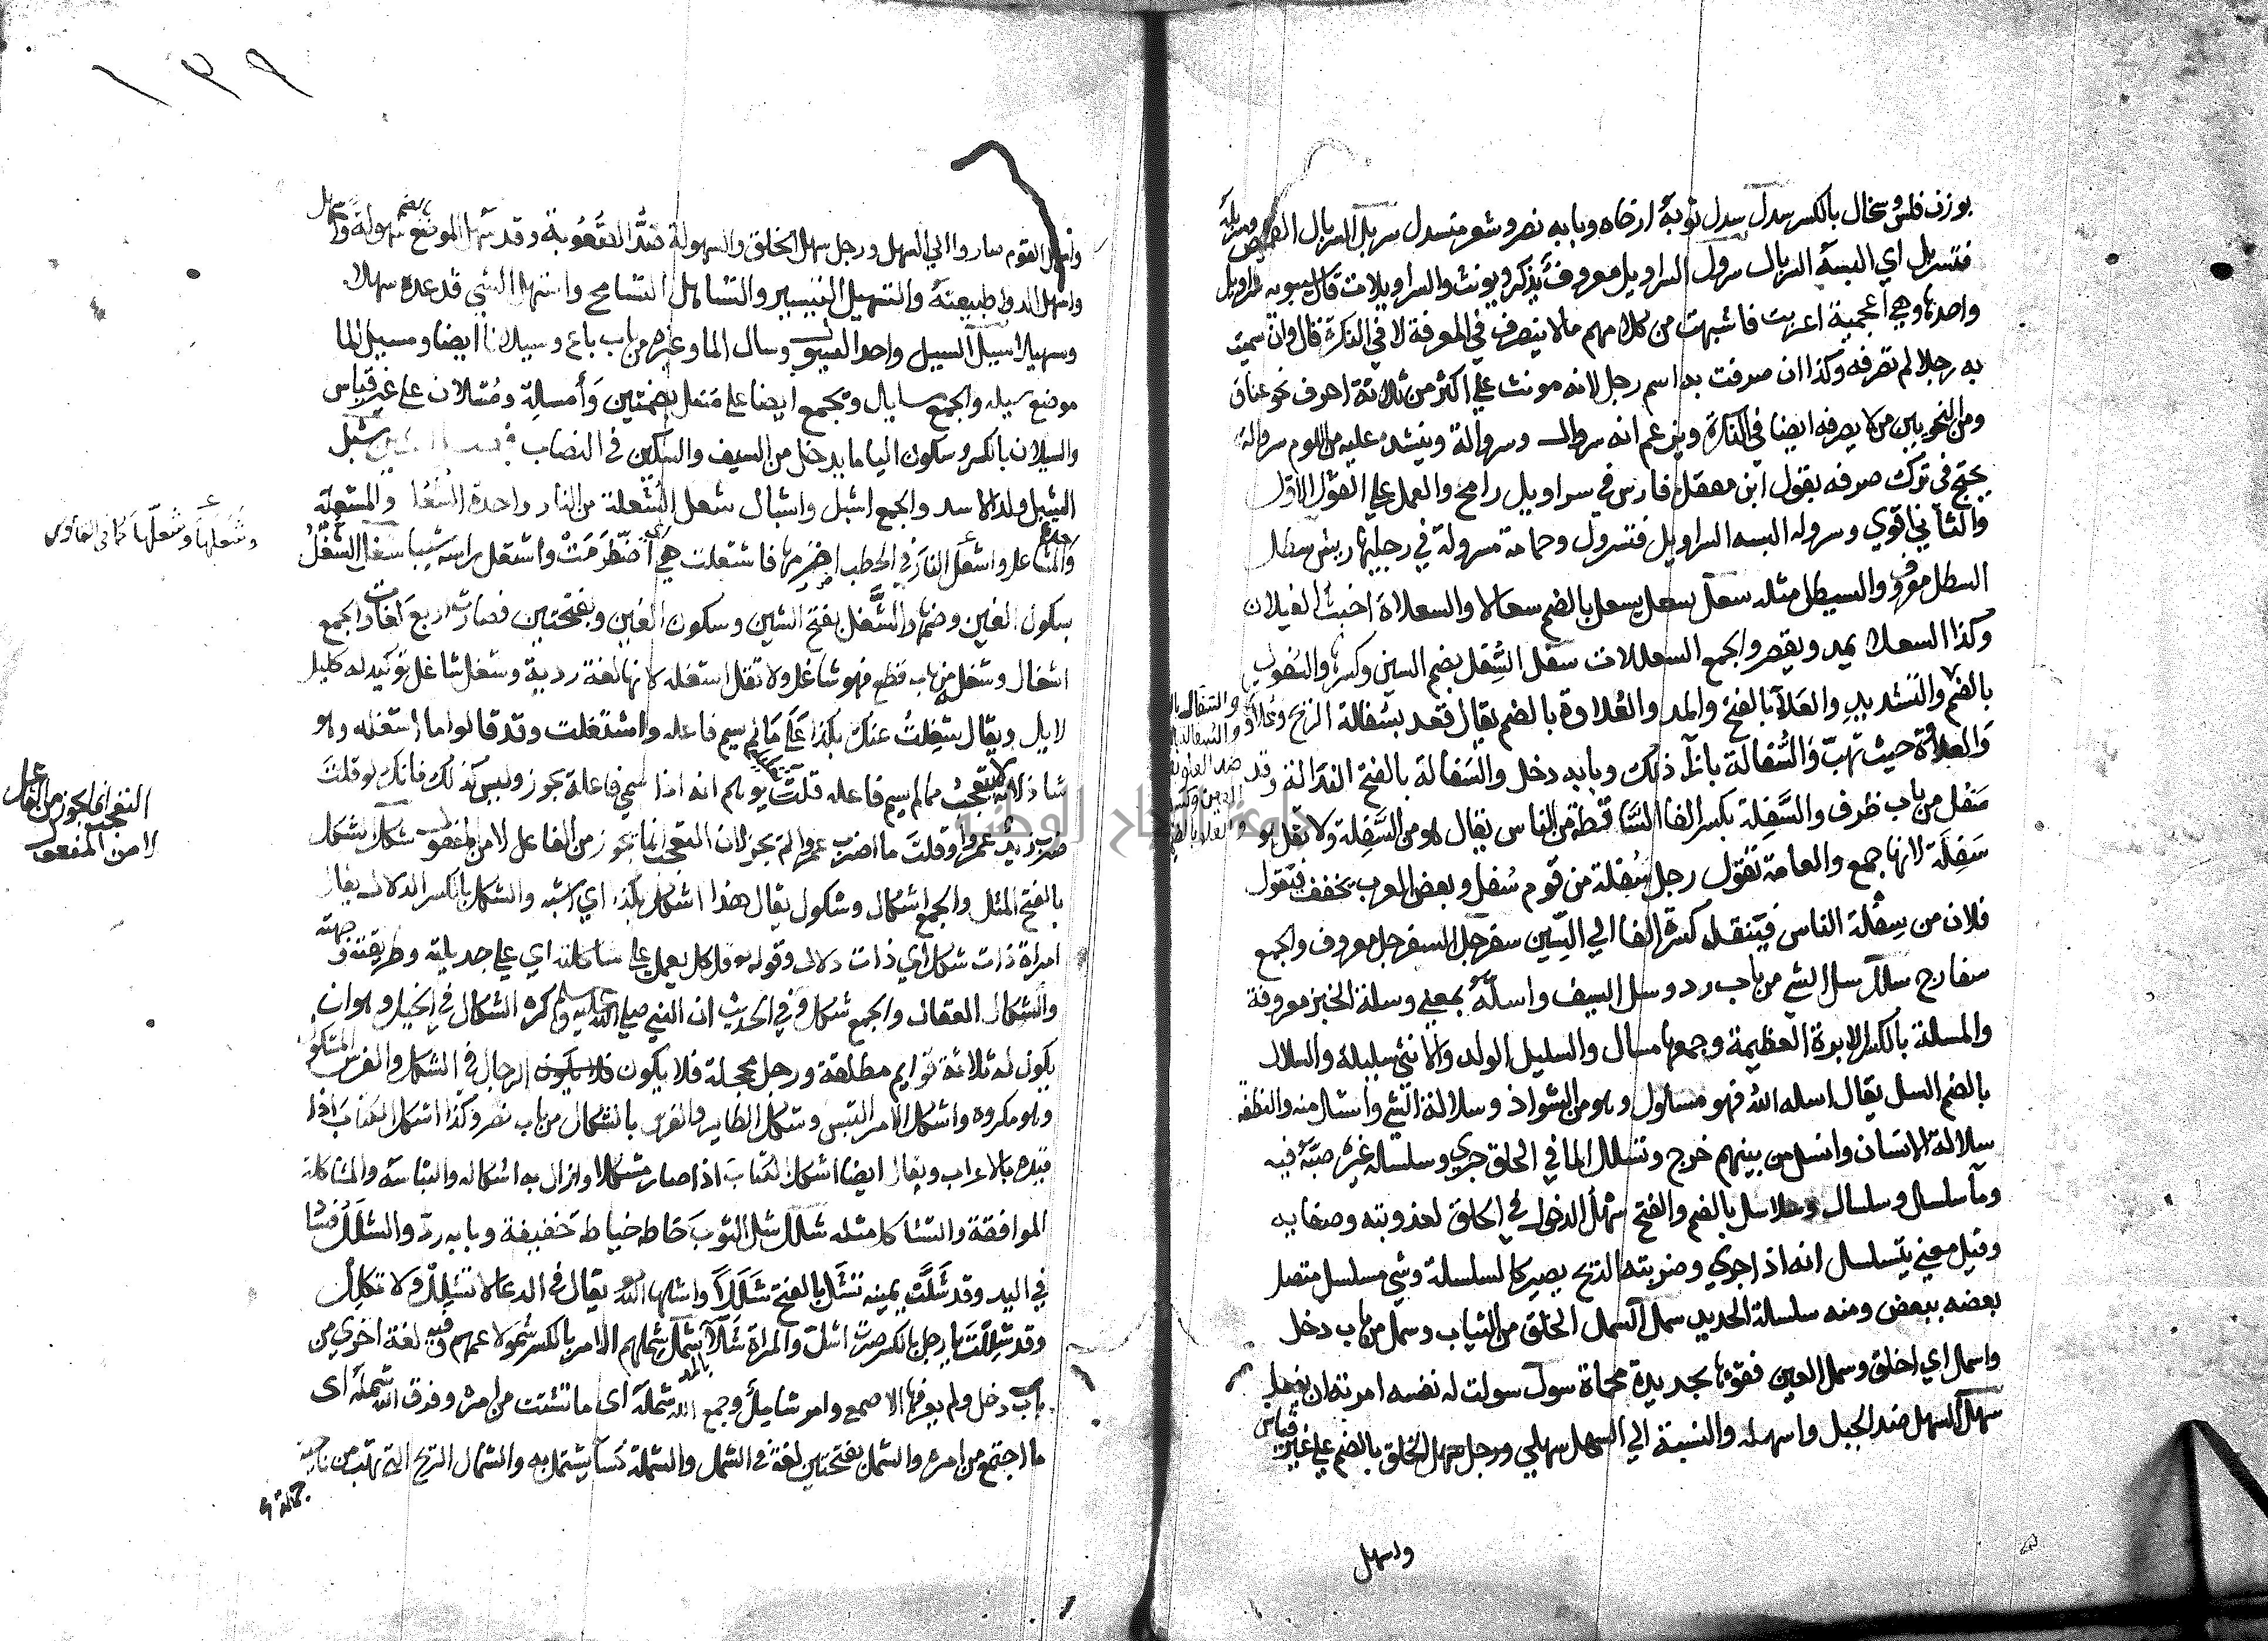 بوزن فلس وسخال بالكسر سدل سدل ثوبه ارخاه وبابه نصر وشعر منسدل سربل السربال القميص وسربله
فتسربل اي البسه السربال سرول السراويل معروف يذكر ويونث والسراويلات قال سيبويه سراويل
واحدة وهي اعجمية اعربت فاشبهت من كلامهم مالا ينصرف في المعرفة لا في النكرة قال وان سميت
به رجلا لم تصرفه وكذا ان صرفت به اسم رجل لانه مونث علي اكثر من ثلاثة احرف نحو عناق
ومن النحويين من لا يصرفه ايضا في النكرة ويزعم انه سروال وسروالة وينشد عليه من اللوم سروالة
يحتج في ترك صرفه بقول ابن مقبل فارس في سراويل رامح والعمل علي القول الاول
والثاني اقوي وسروله البسه السراويل فتسرول وحمامة مسرولة في رجليها ريش سطل
السطل معروف والسيطل مثله سعل يسعل بالضم سعالا والسعلاة اخبث الغيلان
وكذا السعلا يمد ويقصر والجمع السعالات سفل السفل بضم السين وكسرها والسفول
بالضم والتشديد والعلا بالفتح والمد والعلاوة بالضم يقال قعد بسفالة الريح وعلاوتها
والعلاوة حيث تهب والسفالة بازآ ذلك وبابه دخل والسفالة بالفتح النذالة وقد
سفل من باب ظرف والسفلة بكسر الفا الساقطة من الناس يقال هو من السفلة ولا تقل هو
سفلة لانها جمع والعامة تقول رجل سفلة من قوم سفل وبعض العرب يخفف فيقول
فلان من سفلة الناس فتنقل كسرة الفا الي السين سفرجل السفرجل معروف والجمع
سفارج سلل سل الشي من باب رد وسل السيف واسله بمعني وسلة الخبز معروفة
والمسلة بالكسر الابرة العظيمة وجمعها مسال والسليل الولد والانثي سليلة والسلال
بالضم السل يقال اسله الله فهو مسلول وهو من الشواذ وسلالة الشي ما استل منه والنطفة
سلالة الانسان وانسل من بينهم خرج وتسلسل الما في الحلق جري وسلسله غيره صبه فيه
ومآ سلسل وسلسال وسلاسل بالضم والفتح سهل الدخول في الحلق لعذوبته وصفايه
وقيل معني يتسلسل انه اذا جري وضربته الريح يصير كالسلسلة وشي مسلسل متصل
بعضه ببعض ومنه سلسلة الحديد سمل السمل الخلق من الثياب وسمل من باب دخل
واسمل اي اخلق وسمل العين فقوها بحديدة محماة سول سولت له نفسه امر زينته ان يفعله
سهل السهل ضد الجبل واسهل والنسبة الي السهل سهلي ورجل سهل الخلق بالضم علي غير قياس
واسهل
١٣٩
واسهل القوم ساروا الي السهل ورجل سهل الخلق والسهولة ضد الصعوبة وقد سهل الموضع بالضم سهولة
واسهل الدوا طبيعته والتسهيل التيسير والتساهل التسامح واستسهل الشي قد عده سهلا
وسهيلا سيل السيل واحد السيول وسال الما وغيره من باب باع وسيلانا ايضا ومسيل الما
موضع سيله والجمع مسايل ويجمع ايضا علي مسل بضمتين وأمسلة ومسلان علي غير قياس
والسيلان بالكسر وسكون اليا ما يدخل من السيف والسكين في النصاب شبل
الشبل ولد الاسد والجمع اشبل واشبال شعل الشعلة من النار واحدة الشعل والمشعلة
والمشاعل واشعل النار في الحطب اضرمها فاشتعلت هي اي اضطرمت واشتعل راسه شيبا شغل الشغل
بسكون الغين وضمها والشغل بفتح الشين وسكون الغين وبفتحتين فصارت اربع لغات والجمع
اشغال وشغله من باب قطع فهو شاغل ولا تقل اشغله لانها لغة ردية وشغل شاغل توكيد له كليل
لايل ويقال شغلت عنك بكذا علي ما لم يسم فاعله واشتغلت وقد قالوا ما اشغله وهو
شاذ لانه لا يتعجب مما لم يسم فاعله قلت يوهم انه اذا سمي فاعله يجوز وليس كذلك فانك لو قلت
ضرب زيد عمرا وقلت ما اضرب عمرا لم يجز لان التعجب انما يجوز من الفاعل لا من المفعول شكل الشكل
بالفتح المثل والجمع اشكال وشكول يقال هذا اشكل بكذا اي اشبه والشكل بالكسر الدلال يقال
امراة ذات شكل اي ذات دلال وقوله قل كل يعمل علي شاكلته اي علي جديلته وطريقته وجهته
والشكال العقال والجمع شكل وفي الحديث ان النبي صلي الله عليه وسلم كره الشكال في الخيل وهو ان
يكون له ثلاثة قوايم مطلقة ورجل محجلة فلا يكون الرجال في الشكل والفرس المشكول
وهو مكروه واشكل الامر التبس وشكل الطاير والفرس بالشكال من باب نصر وكذا شكل الكتاب اذا
قيده بالاعراب ويقال ايضا اشكل الكتاب اذا صار مشكلا وازال به اشكاله والتباسه والمشاكلة
الموافقة والتشاكل مثله شلل شل الثوب خاطه خياطة خفيفة وبابه رد والشلل فساد
في اليد وقد شلت يمينه تشل بالفتح شللا واشلها الله يقال في الدعا لا تشلل ولا تكلل
وقد شللت يا رجل بالكسر صرت اشل والمراة شلآ شمل شملهم الامر بالكسر شمولا عمهم وفيه لغة اخري من
باب دخل ولم يعرفها الاصمعي وامر شامل وجمع الله شمله اي ما تشتت من امره وفرق الله شمله اي
ما اجتمع من امره والشمل بفتحتين لغة في الشمل والشملة كسآ يشتمل به والشمال الريح التي تهب من ناحية
وشعلها وشعلها كما في القاموس
التعجب انما يجوز من الفاعل
لا من المفعول